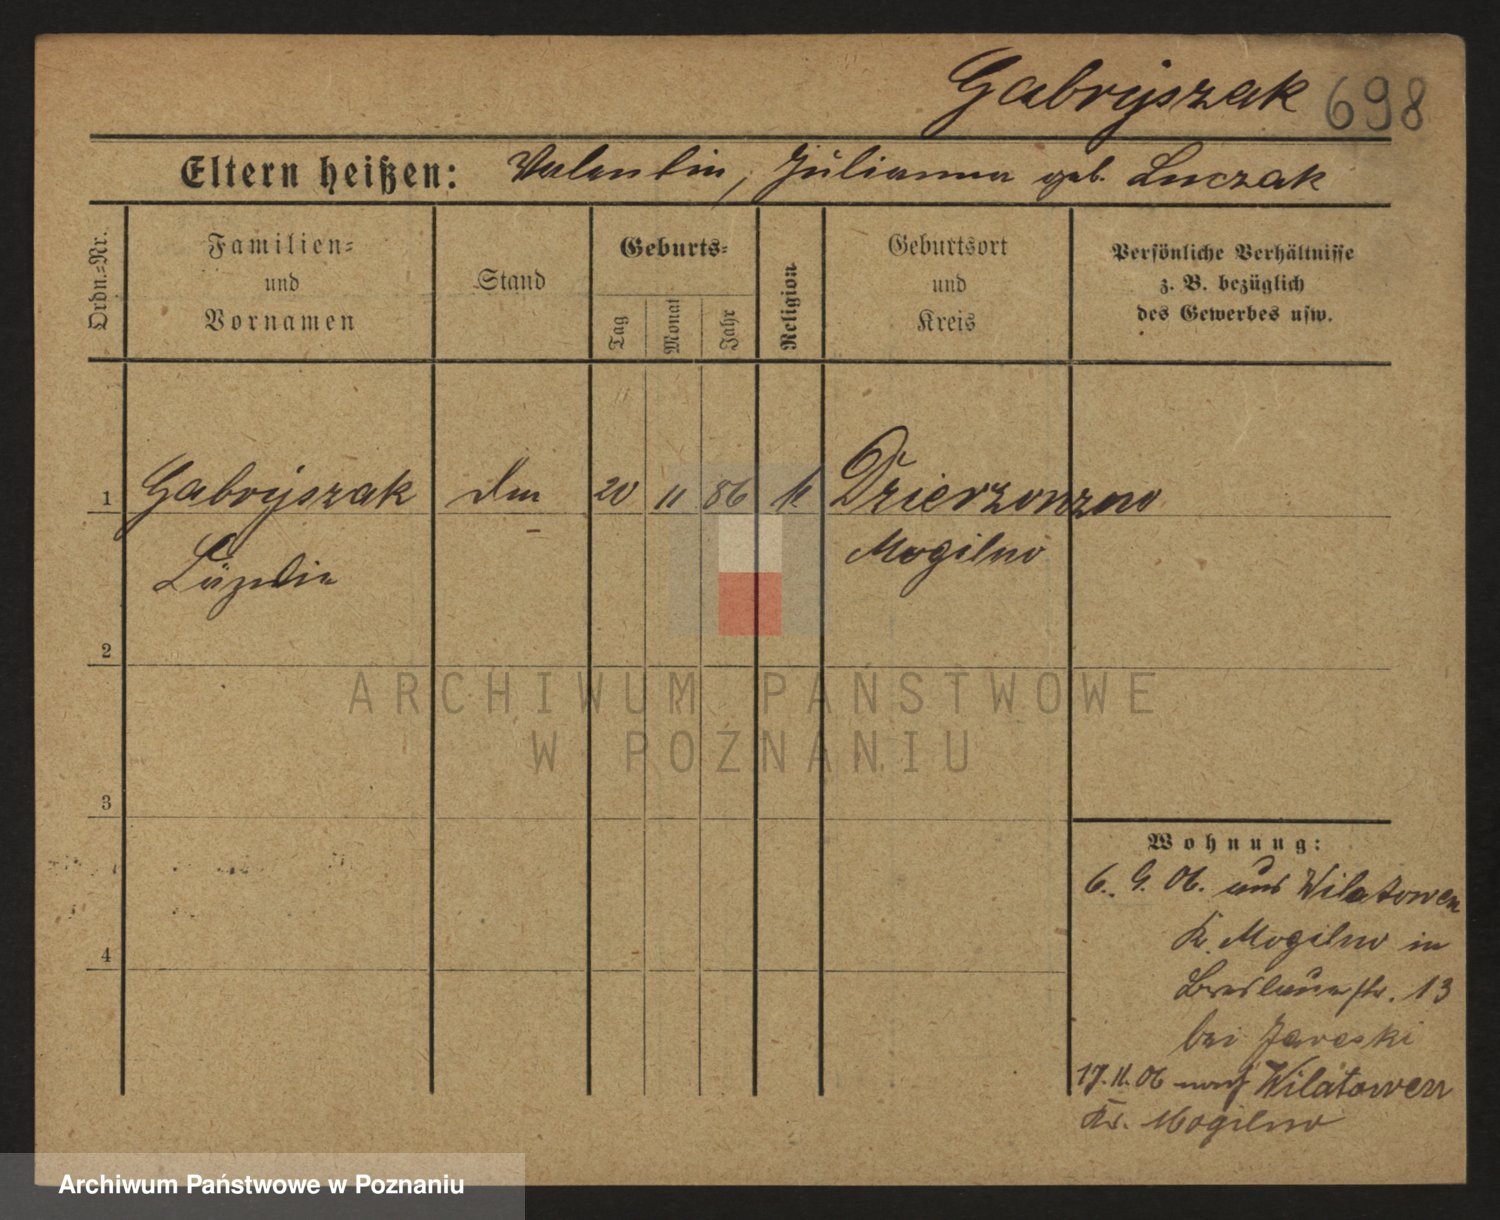 Gabryszak 698
Eltern heißen: Valentin, Julianna geb. Luczak
Ordn.-Nr.
Familien-
und
Vornamen
Stand
Geburts-
Tag
Monat
Jahr
Religion
Geburtsort
und
Kreis
Persönliche Verhältnisse
z. B. bezüglich
des Gewerbes usw.
1 Gabryszak 20 11 86 k. Dzierzonzno
Mogilno
2
3
4
Wohnung:
6. 9. 06. aus Wilatowen
Kr. Mogilno in
Breslauerstr. 13
bei
17. 11. 06 nach Wilatowen
Kr. Mogilno
ARCHIWUM PAŃSTWOWE
W POZNANIU
Archiwum Państwowe w Poznaniu